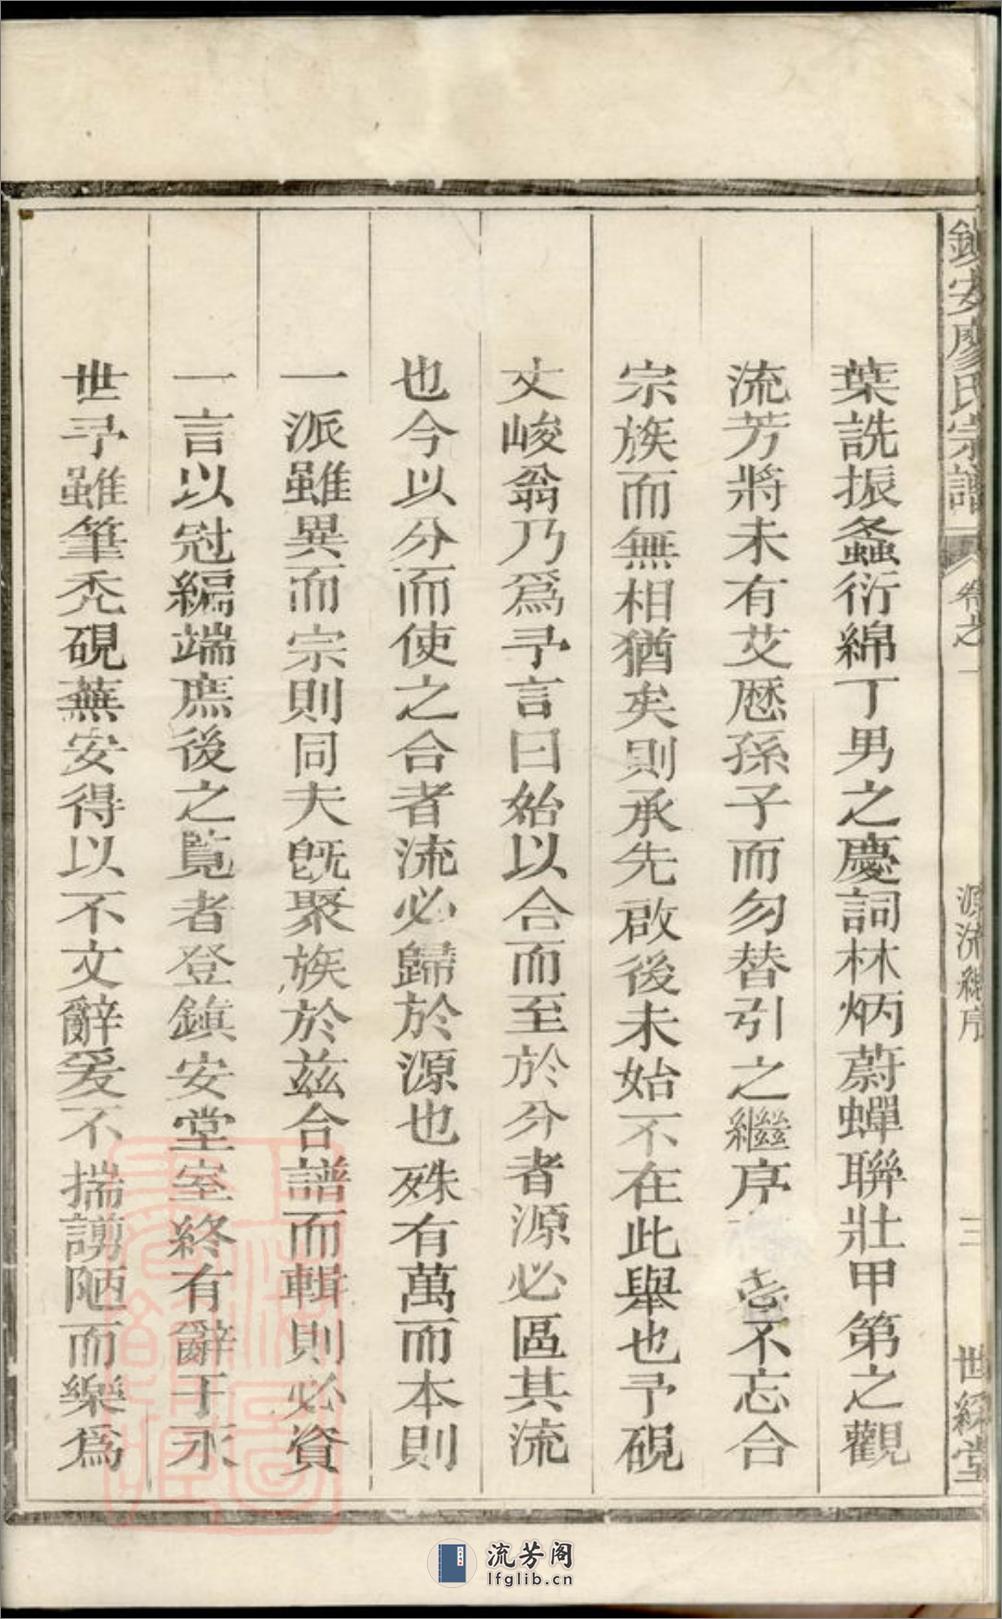 鎮安廖氏宗譜 卷之一 源流總序 三 世綵堂
葉詵振螽衍綿丁男之慶詞林炳蔚蟬聯壯甲第之觀
流芳將未有艾厯孫子而勿替引之繼序 壹不忘合
宗族而無相猶矣則承先啟後未始不在此舉也予硯
丈峻翁乃爲予言曰始以合而至於分者源必區其流
也今以分而使之合者流必歸於源也殊有萬而本則
一派雖異而宗則同夫旣聚族於茲合譜而輯則必資
一言以冠編端庶後之覧者登鎮安堂室終有辭于永
世予雖筆禿硯蕪安得以不文辭爰不揣謭陋而樂爲
流芳阁
lfglib.cn